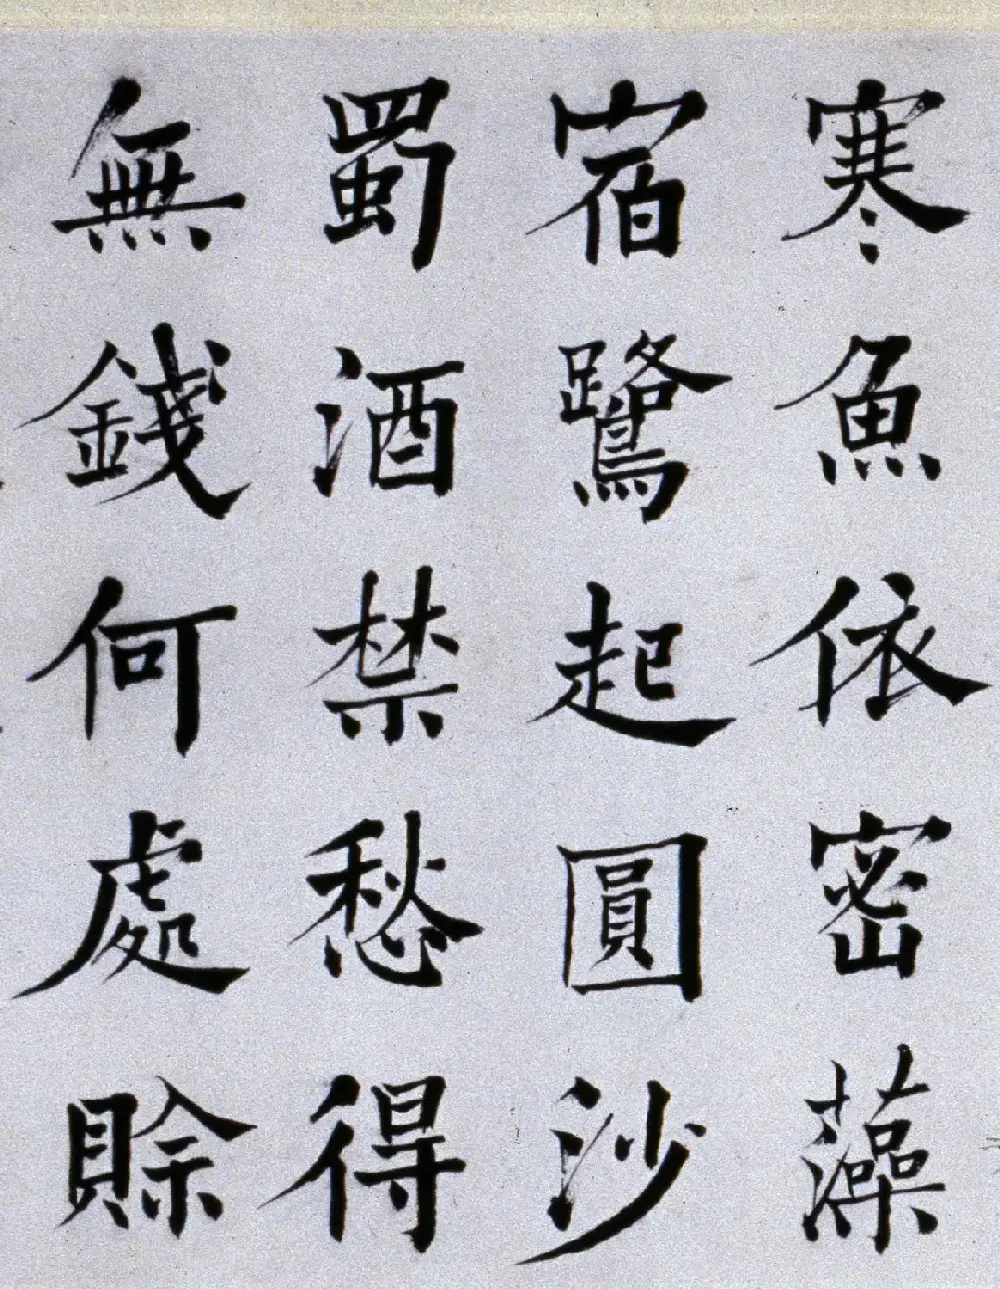 寒魚依密藻
宿鷺起圓沙
蜀酒禁愁得
無錢何處賒